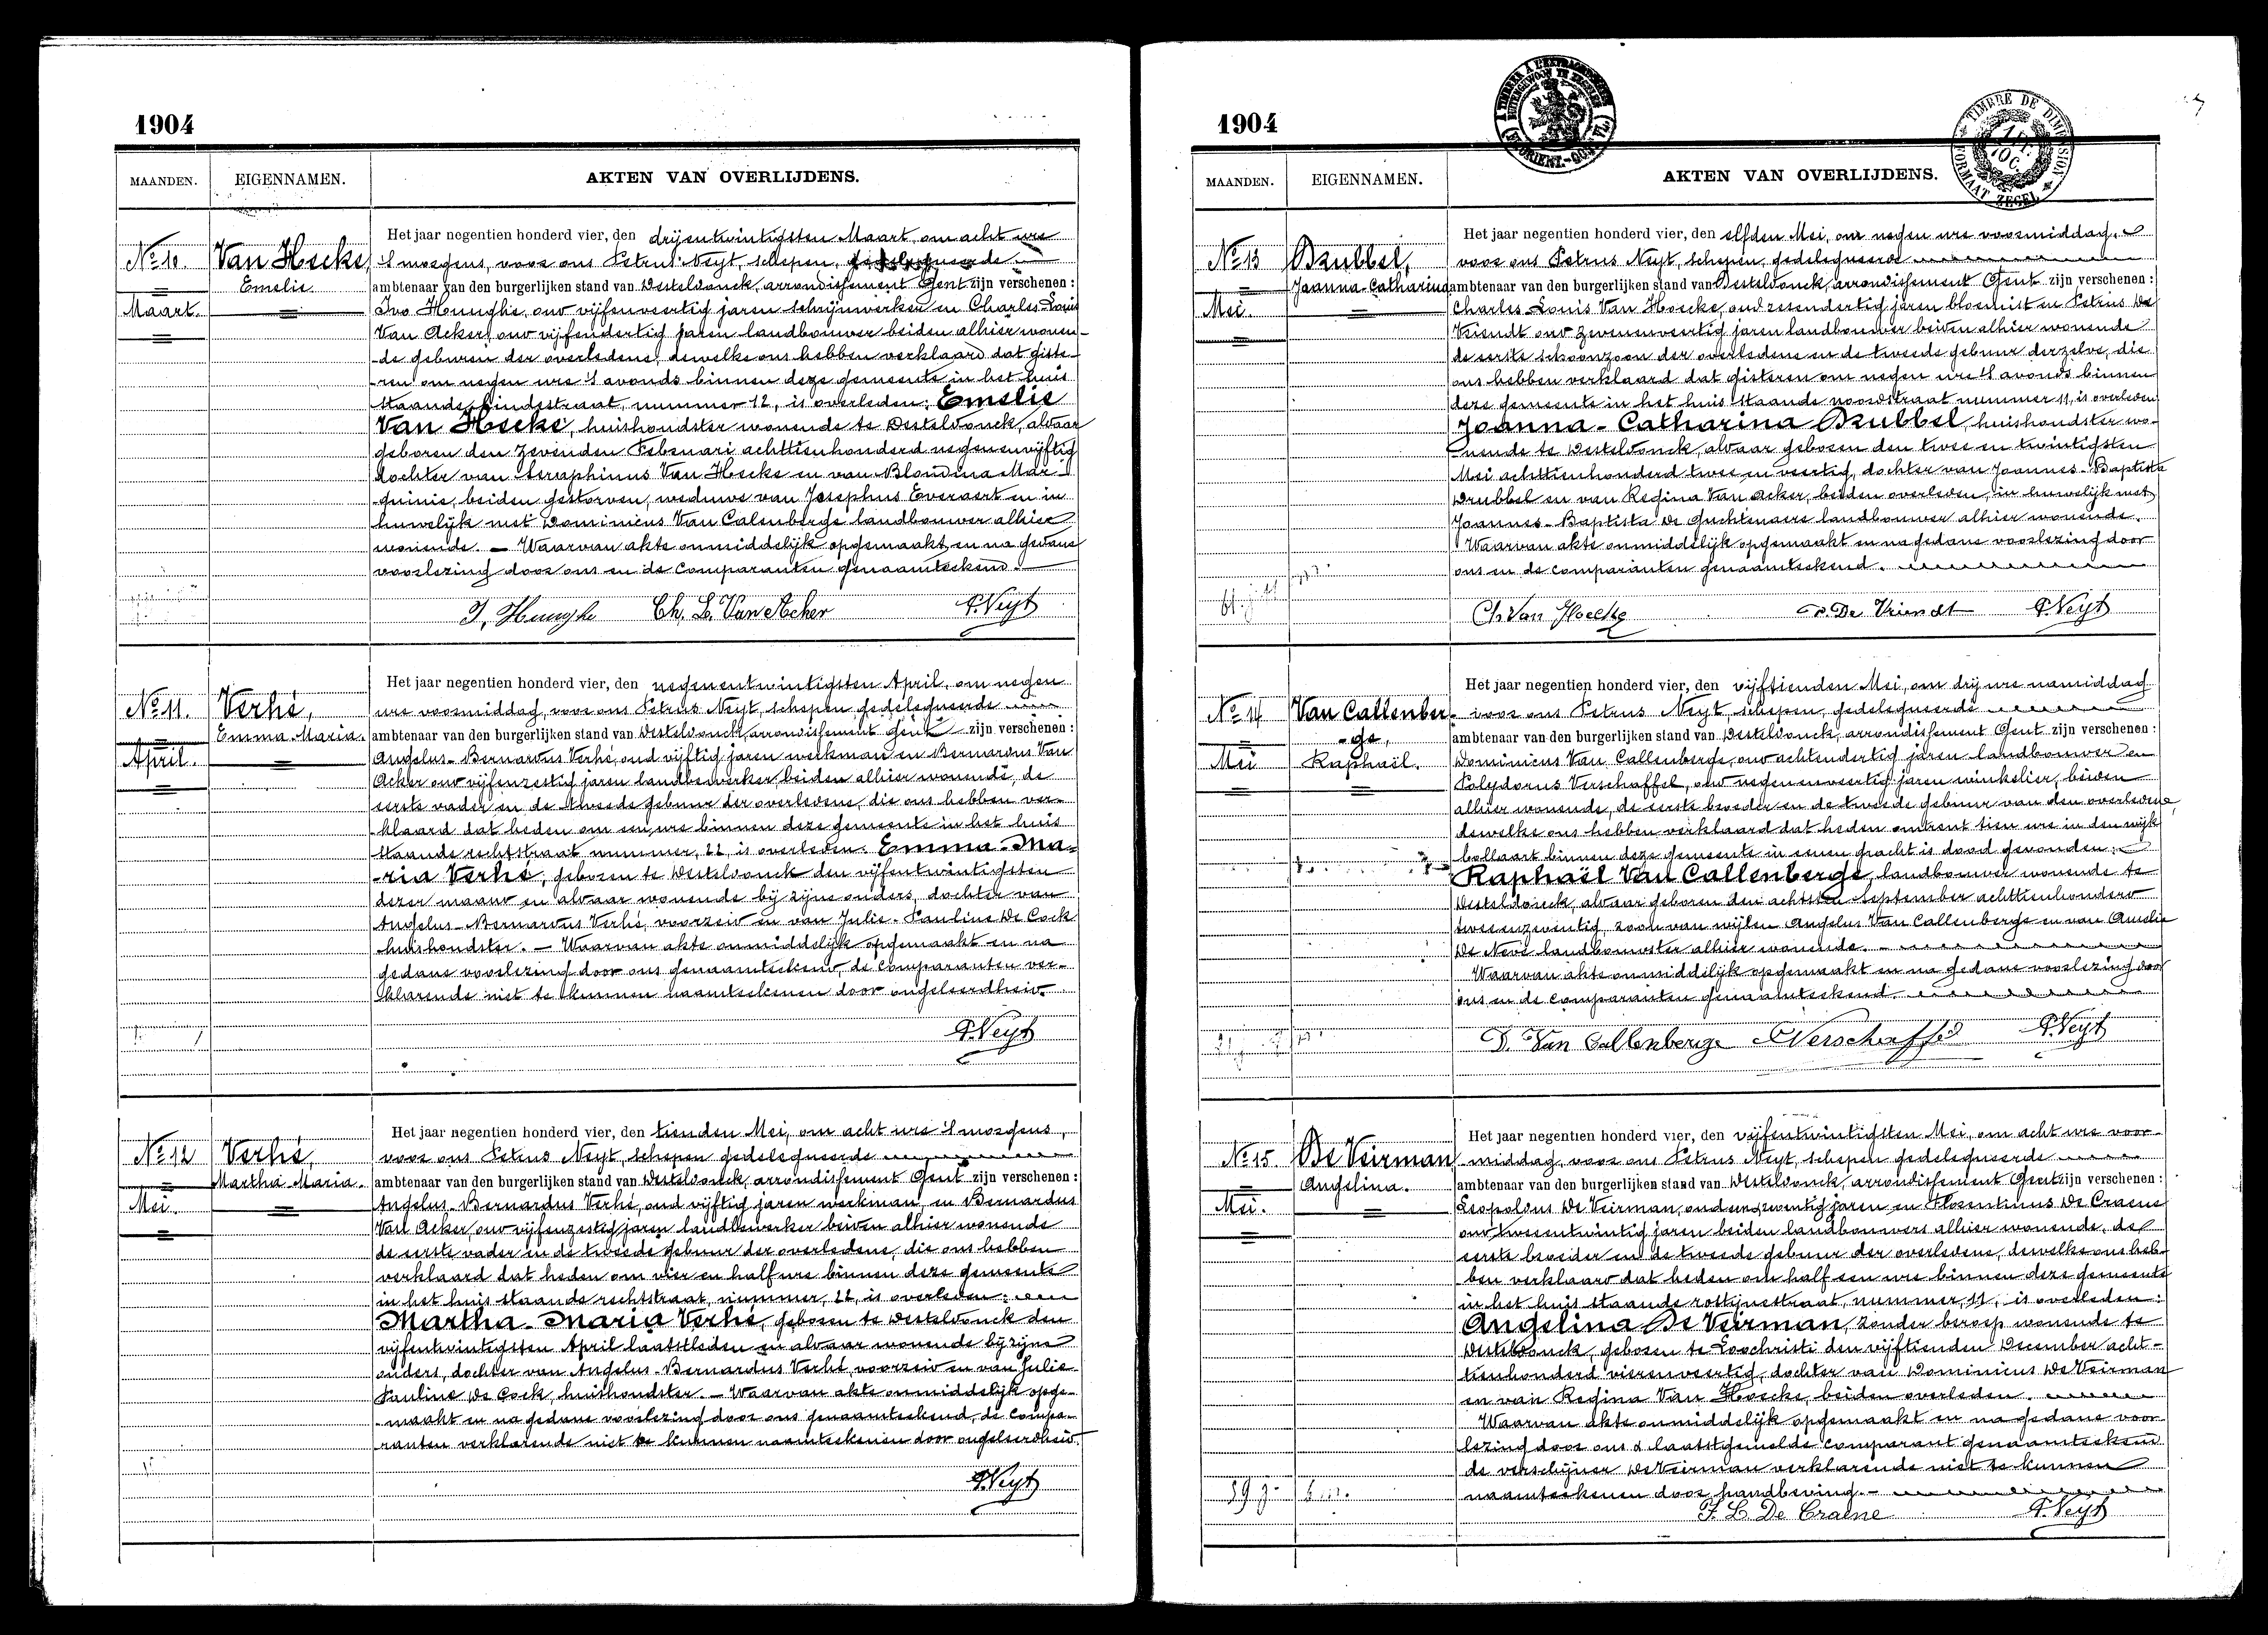 1904
MAANDEN. EIGENNAMEN. AKTEN VAN OVERLIJDENS.
No 10. Van Hecke, Emelie. Maart.
Het jaar negentien honderd vier, den drijentwintigsten Maart, om acht ure
's morgens, voor ons Petrus Neyt, schepen, gedelegueerde
ambtenaar van den burgerlijken stand van Desteldonck, arrondissement Gent zijn verschenen:
Ivo Hunghe, oud vijfenveertig jaren schrijnwerker en Charles-Louis
Van Acker, oud vijfendertig jaren landbouwer beiden alhier wonen-
de geburen der overledene, dewelke ons hebben verklaard dat giste-
ren om negen ure 's avonds binnen deze gemeente in het huis
staande, straat, nummer 12, is overleden: Emelie
Van Hecke, huishoudster wonende te Desteldonck, alwaar
geboren den zevenden Februari achttienhonderd negenenvijftig
dochter van Seraphinus Van Hecke en van Blondina Mar-
quinie, beiden gestorven, weduwe van Josephus Everaert en in
huwelijk met Dominicus Van Calenberge landbouwer alhier
wonende. — Waarvan akte onmiddelijk opgemaakt en na gedane
voorlezing door ons en de comparanten genaamteekend.
I. Hunghe Ch. L. Van Acker P. Neyt
No 11. Verhé, Emma Maria. April.
Het jaar negentien honderd vier, den negenentwintigsten April, om negen
ure voormiddag, voor ons Petrus Neyt, schepen gedelegueerde
ambtenaar van den burgerlijken stand van Desteldonck, arrondissement Gent zijn verschenen:
Angelus-Bernardus Verhé, oud vijftig jaren werkman en Bernardus Van
Acker oud vijfenzestig jaren landbewerker beiden alhier wonende, de
eerste vader en de tweede gebuur der overledene, die ons hebben ver-
klaard dat heden om een ure binnen deze gemeente in het huis
staande rechtstraat nummer, 22, is overleden: Emma-Ma-
ria Verhé, geboren te Desteldonck den vijfentwintigsten
dezer maand en alwaar wonende bij zijne ouders, dochter van
Angelus-Bernardus Verhé, voorzeid en van Julie-Pauline De Cock
huishoudster. — Waarvan akte onmiddelijk opgemaakt en na
gedane voorlezing door ons genaamteekend, de comparanten ver-
klarende niet te kunnen naamteekenen door ongeleerdheid.
P. Neyt
No 12 Verhé, Martha Maria. Mei.
Het jaar negentien honderd vier, den tienden Mei, om acht ure 's morgens,
voor ons Petrus Neyt, schepen gedelegueerde
ambtenaar van den burgerlijken stand van Desteldonck, arrondissement Gent zijn verschenen:
Angelus-Bernardus Verhé, oud vijftig jaren werkman, en Bernardus
Van Acker, oud vijfenzestig jaren landbewerker beiden alhier wonende
de eerste vader en de tweede gebuur der overledene, die ons hebben
verklaard dat heden om vier en half ure binnen deze gemeente
in het huis staande rechtstraat, nummer, 22, is overleden:
Martha-Maria Verhé, geboren te Desteldonck den
vijfentwintigsten April laatstleden en alwaar wonende bij zijne
ouders, dochter van Angelus-Bernardus Verhé, voorzeid en van Julie
Pauline De Cock, huishoudster. — Waarvan akte onmiddelijk opge-
maakt en na gedane voorlezing door ons genaamteekend, de compa-
ranten verklarende niet te kunnen naamteekenen door ongeleerdheid.
P. Neyt
1904
MAANDEN. EIGENNAMEN. AKTEN VAN OVERLIJDENS.
TIMBRE DE DIMENSION
FORMAAT ZEGEL
No 13 Drubbel, Joanna-Catharina Mei.
Het jaar negentien honderd vier, den elfden Mei, om negen ure voormiddag,
voor ons Petrus Neyt, schepen, gedelegueerde
ambtenaar van den burgerlijken stand van Desteldonck, arrondissement Gent zijn verschenen:
Charles Louis Van Hoecke, oud zesendertig jaren bloemist en Petrus De
Vriendt oud zevenenveertig jaren landbouwer beiden alhier wonende
de eerste schoonzoon der overledene en de tweede gebuur derzelve, die
ons hebben verklaard dat gisteren om negen ure 's avonds binnen
deze gemeente in het huis staande noordstraat nummer 11, is overleden
Joanna-Catharina Drubbel, huishoudster wo-
nende te Desteldonck, alwaar geboren den twee en twintigsten
Mei achttienhonderd twee en veertig, dochter van Joannes-Baptista
Drubbel en van Regina Van Acker, beiden overleden, in huwelijk met
Joannes-Baptista De Guchtenaere landbouwer alhier wonende.
Waarvan akte onmiddelijk opgemaakt en na gedane voorlezing door
ons en de comparanten genaamteekend.
Ch. Van Hoecke P. De Vriendt P. Neyt
No 14 Van Callenber-ge, Raphaël. Mei
Het jaar negentien honderd vier, den vijftienden Mei, om drij ure namiddag
voor ons Petrus Neyt, schepen, gedelegueerde
ambtenaar van den burgerlijken stand van Desteldonck, arrondissement Gent zijn verschenen:
Dominicus Van Callenberge, oud achtendertig jaren landbouwer en
Polydorus Verschaffel, oud negenenveertig jaren winkelier, beiden
alhier wonende, de eerste broeder en de tweede gebuur van den overledene,
dewelke ons hebben verklaard dat heden omtrent tien ure in den wijk
bollaart binnen deze gemeente in eenen gracht is dood gevonden:
Raphaël Van Callenberge, landbouwer wonende te
Desteldonck, alwaar geboren den achtsten September achttienhonderd
tweeenzeventig, zoon van wijlen Angelus Van Callenberge en van Amelie
De Neve landbouwster alhier wonende.
Waarvan akte onmiddelijk opgemaakt en na gedane voorlezing door
ons en de comparanten genaamteekend.
D. Van Callenberge P. Verschaffel P. Neyt
No 15 De Veirman Angelina. Mei.
Het jaar negentien honderd vier, den vijfentwintigsten Mei, om acht ure voor-
middag, voor ons Petrus Neyt, schepen gedelegueerde
ambtenaar van den burgerlijken stand van Desteldonck, arrondissement Gent zijn verschenen:
Leopoldus De Veirman, oud eenzeventig jaren en Florentinus De Craene
oud tweeentwintig jaren beiden landbouwers alhier wonende, de
eerste broeder en de tweede gebuur der overledene, dewelke ons heb-
ben verklaard dat heden om half een ure binnen deze gemeente
in het huis staande rostijnestraat, nummer, 11, is overleden:
Angelina De Veirman, zonder beroep wonende te
Desteldonck, geboren te Loochristi den vijftienden December acht-
tienhonderd vierenveertig, dochter van Dominicus De Veirman
en van Regina Van Hoecke, beiden overleden.
Waarvan akte onmiddelijk opgemaakt en na gedane voor-
lezing door ons & laatstgemelde comparant genaamteekend
de verschijner De Veirman verklarende niet te kunnen
naamteekenen door handbeving.
59 j. 6 m.
F. L. De Craene P. Neyt